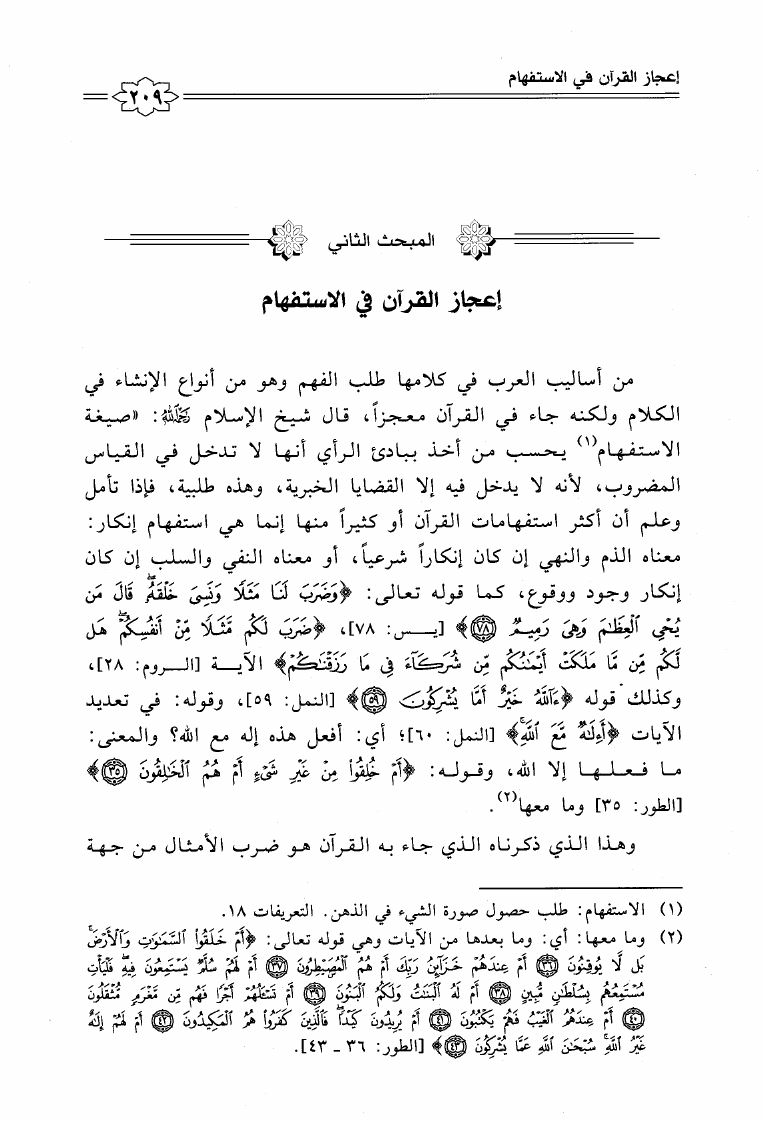 إعجاز القرآن في الاستفهام
٢٠٩
المبحث الثاني
إعجاز القرآن في الاستفهام
من أساليب العرب في كلامها طلب الفهم وهو من أنواع الإنشاء في
الكلام ولكنه جاء في القرآن معجزاً، قال شيخ الإسلام رَحِمَهُ اللهُ: «صيغة
الاستفهام(١) يحسب من أخذ ببادئ الرأي أنها لا تدخل في القياس
المضروب، لأنه لا يدخل فيه إلا القضايا الخبرية، وهذه طلبية، فإذا تأمل
وعلم أن أكثر استفهامات القرآن أو كثيراً منها إنما هي استفهام إنكار:
معناه الذم والنهي إن كان إنكاراً شرعياً، أو معناه النفي والسلب إن كان
إنكار وجود ووقوع، كما قوله تعالى: ﴿وَضَرَبَ لَنَا مَثَلًا وَنَسِىَ خَلْقَهُۥ ۖ قَالَ مَن
يُحْىِ ٱلْعِظَٰمَ وَهِىَ رَمِيمٌ ۝٧٨﴾ [يــس: ٧٨]، ﴿ضَرَبَ لَكُم مَّثَلًا مِّنْ أَنفُسِكُمْ ۖ هَل
لَّكُم مِّن مَّا مَلَكَتْ أَيْمَٰنُكُم مِّن شُرَكَآءَ فِى مَا رَزَقْنَٰكُمْ﴾ الآيـة [الـروم: ٢٨]،
وكذلك قوله ﴿ءَآللَّهُ خَيْرٌ أَمَّا يُشْرِكُونَ ۝٥٩﴾ [النمل: ٥٩]، وقوله: في تعديد
الآيات ﴿أَءِلَٰهٌ مَّعَ ٱللَّهِ ۚ﴾ [النمل: ٦٠]؛ أي: أفعل هذه إله مع الله؟ والمعنى:
ما فعلها إلا الله، وقوله: ﴿أَمْ خُلِقُوا۟ مِنْ غَيْرِ شَىْءٍ أَمْ هُمُ ٱلْخَٰلِقُونَ ۝٣٥﴾
[الطور: ٣٥] وما معها(٢).
وهذا الذي ذكرناه الذي جاء به القرآن هو ضرب الأمثال من جهة
(١) الاستفهام: طلب حصول صورة الشيء في الذهن. التعريفات ١٨.
(٢) وما معها: أي: وما بعدها من الآيات وهي قوله تعالى: ﴿أَمْ خَلَقُوا۟ ٱلسَّمَٰوَٰتِ وَٱلْأَرْضَ ۚ
بَل لَّا يُوقِنُونَ ۝٣٦ أَمْ عِندَهُمْ خَزَآئِنُ رَبِّكَ أَمْ هُمُ ٱلْمُصَۣيْطِرُونَ ۝٣٧ أَمْ لَهُمْ سُلَّمٌ يَسْتَمِعُونَ فِيهِ ۖ فَلْيَأْتِ
مُسْتَمِعُهُم بِسُلْطَٰنٍ مُّبِينٍ ۝٣٨ أَمْ لَهُ ٱلْبَنَٰتُ وَلَكُمُ ٱلْبَنُونَ ۝٣٩ أَمْ تَسْـَٔلُهُمْ أَجْرًا فَهُم مِّن مَّغْرَمٍ مُّثْقَلُونَ
۝٤٠ أَمْ عِندَهُمُ ٱلْغَيْبُ فَهُمْ يَكْتُبُونَ ۝٤١ أَمْ يُرِيدُونَ كَيْدًا ۖ فَٱلَّذِينَ كَفَرُوا۟ هُمُ ٱلْمَكِيدُونَ ۝٤٢ أَمْ لَهُمْ إِلَٰهٌ
غَيْرُ ٱللَّهِ ۚ سُبْحَٰنَ ٱللَّهِ عَمَّا يُشْرِكُونَ ۝٤٣﴾ [الطور: ٣٦ ـ ٤٣].